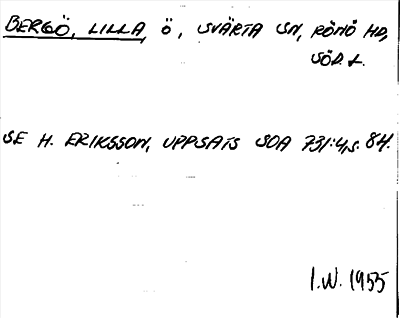 BERGÖ, LILLA, Ö, SVÄRTA SN, RÖNÖ HD,
SÖD. L.
SE H. ERIKSSON, UPPSATS SOA 731:4, S. 84.
I.W. 1955